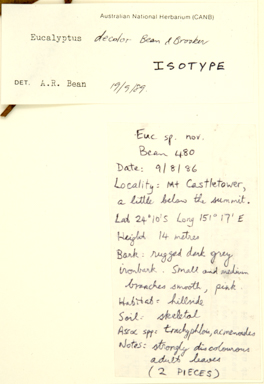 Australian National Herbarium (CANB)
Eucalyptus decolor Bean & Brooker
ISOTYPE
DET. A.R. Bean 19/9/89
Euc sp. nov.
Bean 480
Date: 9/8/86
Locality: Mt Castletower,
a little below the summit.
Lat 24°10'S Long 151°17'E
Height 14 metres
Bark: rugged dark grey
ironbark. Small and medium
branches smooth, pink.
Habitat: hillside
Soil: skeletal
Assoc spp: trachyphloia, acmenoides
Notes: strongly discolourous
adult leaves
(2 PIECES)